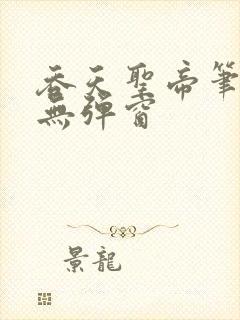 吞天聖帝筆
無彈窗
景龍